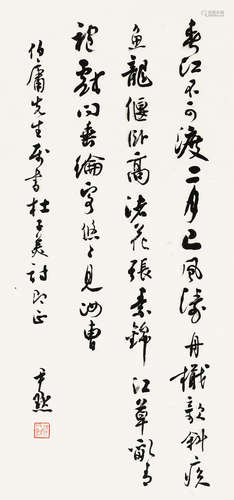 春江不可渡二月已風濤舟檝欹斜疾
魚龍偃卧高渚花張素錦汀草亂青
袍戲問垂綸客悠〻見汝曹
伯庸先生属書杜子美詩即正
尹默